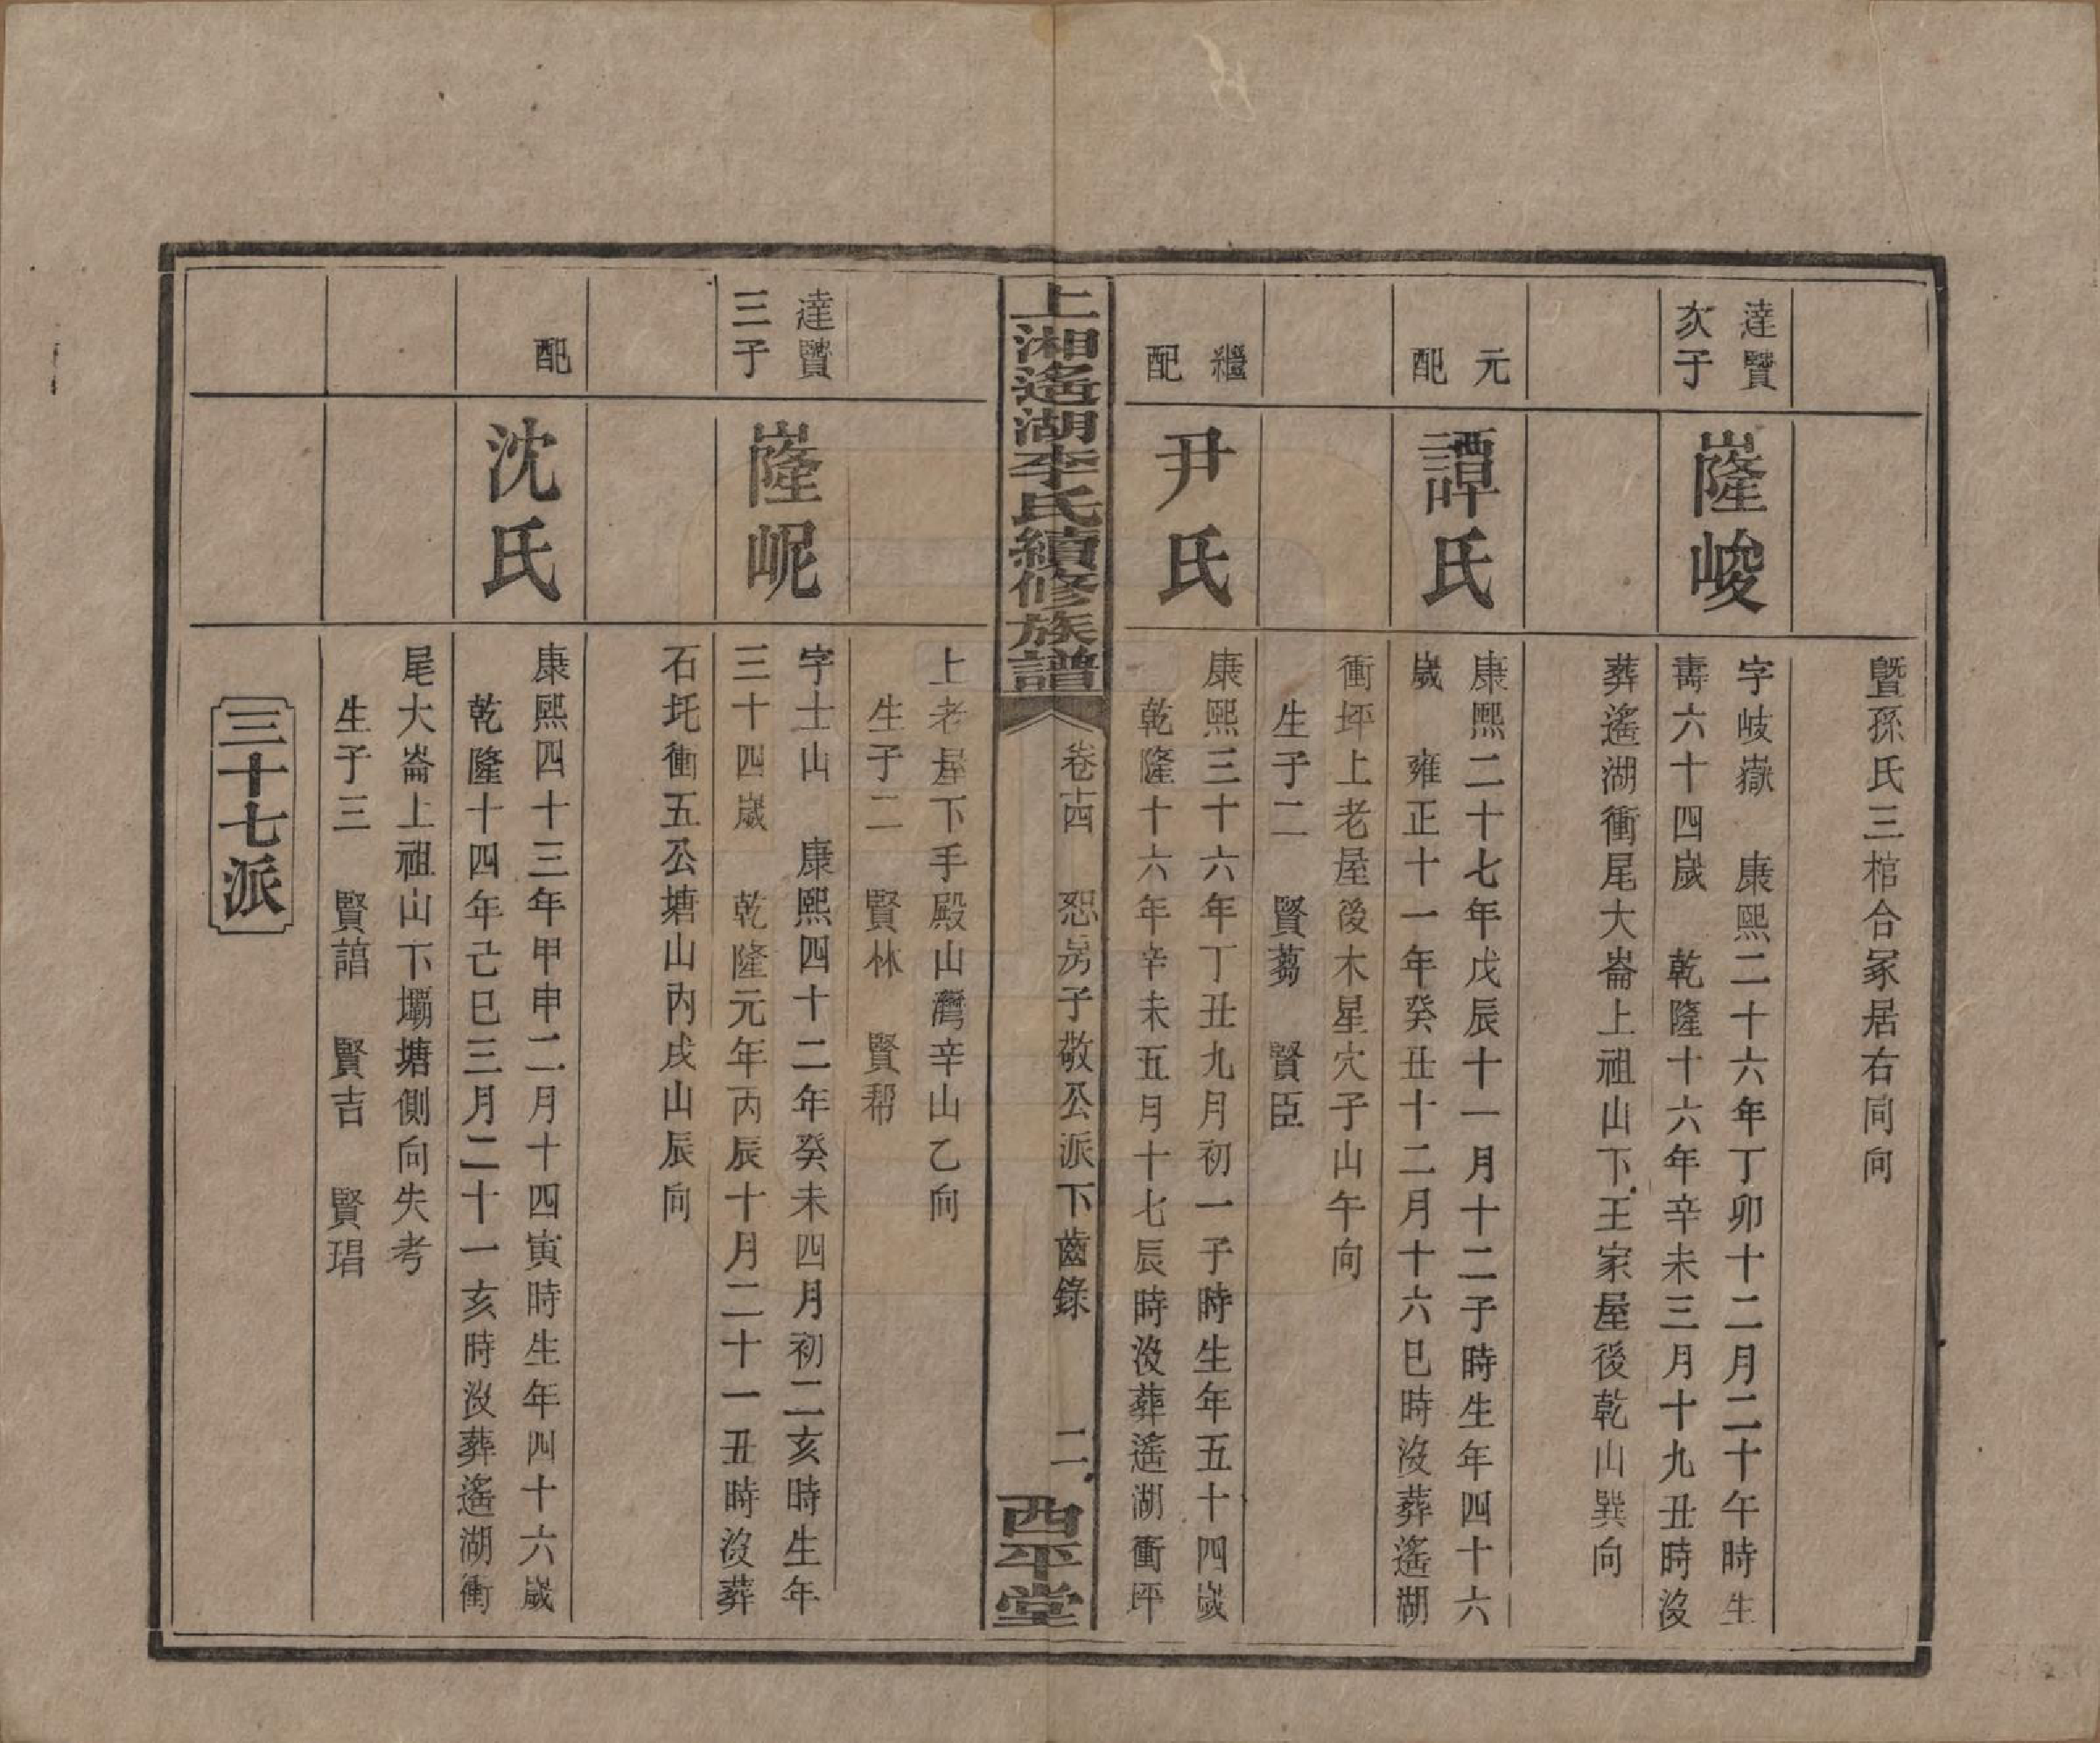 暨孫氏三棺合冢居右同向
達賢
次子
嶐峻
字岐嶽　康熙二十六年丁卯十二月二十午時生
壽六十四歲　乾隆十六年辛未三月十九丑時沒
葬遙湖衝尾大崙上祖山下王家屋後乾山巽向
元
配
譚氏
康熙二十七年戊辰十一月十二子時生年四十六
歲　雍正十一年癸丑十二月十六巳時沒葬遙湖
衝坪上老屋後木星穴子山午向
生子二　賢蒭　賢臣
繼
配
尹氏
康熙三十六年丁丑九月初一子時生年五十四歲
乾隆十六年辛未五月十七辰時沒葬遙湖衝坪
上湘遙湖李氏續修族譜
卷十四　恕房子敬公派下齒錄　二
西平堂
上老屋下手殿山灣辛山乙向
生子二　賢林　賢幫
達賢
三子
嶐岷
字士山　康熙四十二年癸未四月初二亥時生年
三十四歲　乾隆元年丙辰十月二十一丑時沒葬
石圫衝五公塘山內戌山辰向
配
沈氏
康熙四十三年甲申二月十四寅時生年四十六歲
乾隆十四年己巳三月二十一亥時沒葬遙湖衝
尾大崙上祖山下壩塘側向失考
生子三　賢誥　賢吉　賢琩
三十七派